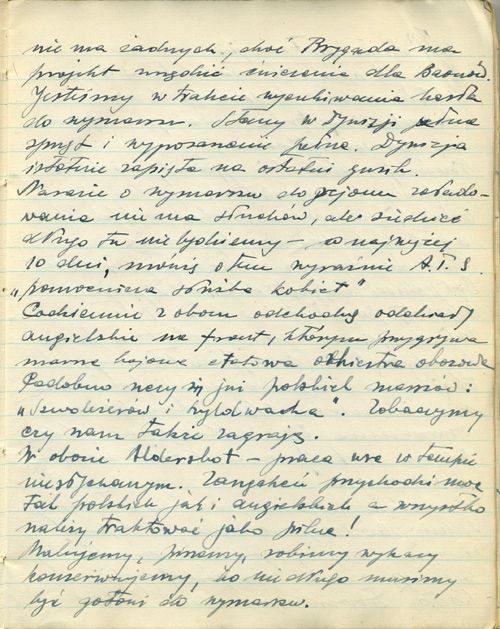 nie ma żadnych, choć Brygada ma
projekt urządzić ćwiczenia dla Baonów.
Jesteśmy w trakcie wyczekiwania hasła
do wymarszu. Mamy w Dywizji pełne
sprzęt i wyposażenie pełne. Dywizja
istotnie zapięta na ostatni guzik.
Narazie o wymarszu do rejonu załado-
wania nie ma słuchów, ale siedzieć
długo tu nie będziemy – co najwyżej
10 dni, mówią o tem wyraźnie A.T.S.
„pomocnicza służba kobiet"
Codziennie z obozu odchodzą oddziały
angielskie na front, którym przygrywa
marsze bojowe etatowa orkiestra obozowa
Podobno uczy się już polskich marszów:
„Szwoleżerów i . Zobaczymy
czy nam także zagrają.
W obozie Aldershot – praca wre w tempie
niesłychanym. Zarządzeń przychodzi moc
tak polskich jak i angielskich a wszystko
należy traktować jako pilne!
Malujemy, piszemy, robimy wykazy
konserwujemy, bo niedługo musimy
być gotowi do wymarszu.